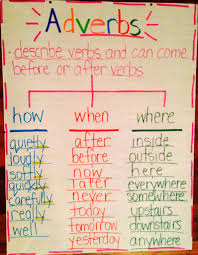 Adverbs
- describe verbs and can come
before or after verbs
how when where
quietly after inside
loudly before outside
softly now here
quickly later everywhere
carefully never somewhere
really today upstairs
well tomorrow downstairs
yesterday anywhere